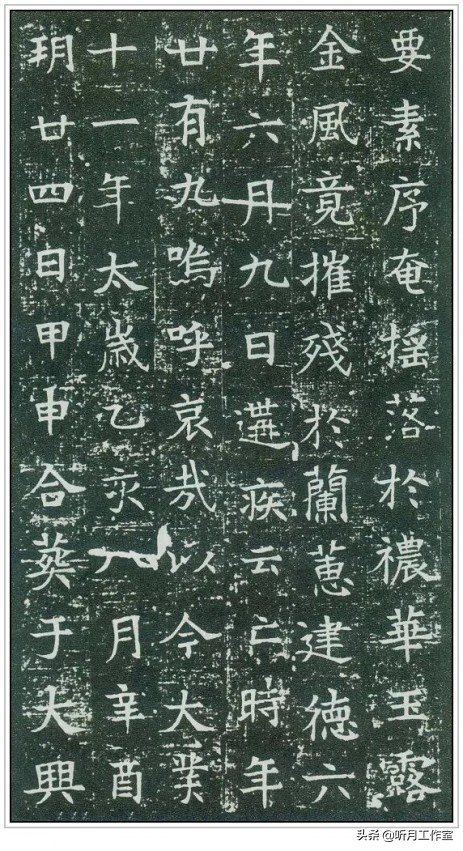 要素序奄揺落於禯華玉露
金風竟摧殘於蘭蕙建德六
年六月九日遘疾云亡時年
廿有九嗚呼哀哉以今大業
十一年太歲乙亥八月辛酉
朔廿四日甲申合葬于大興
头条 @听月工作室